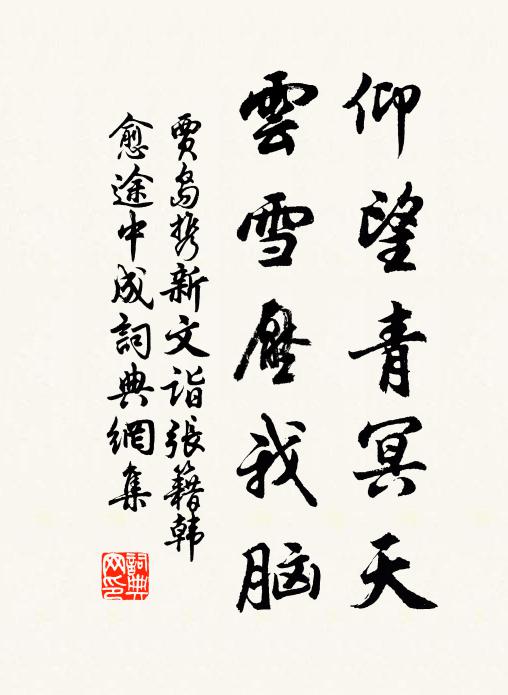 仰望青冥天
雲雪壓我脑
賈島携新文詣張籍韓
愈途中成詞典網集
詞典网印